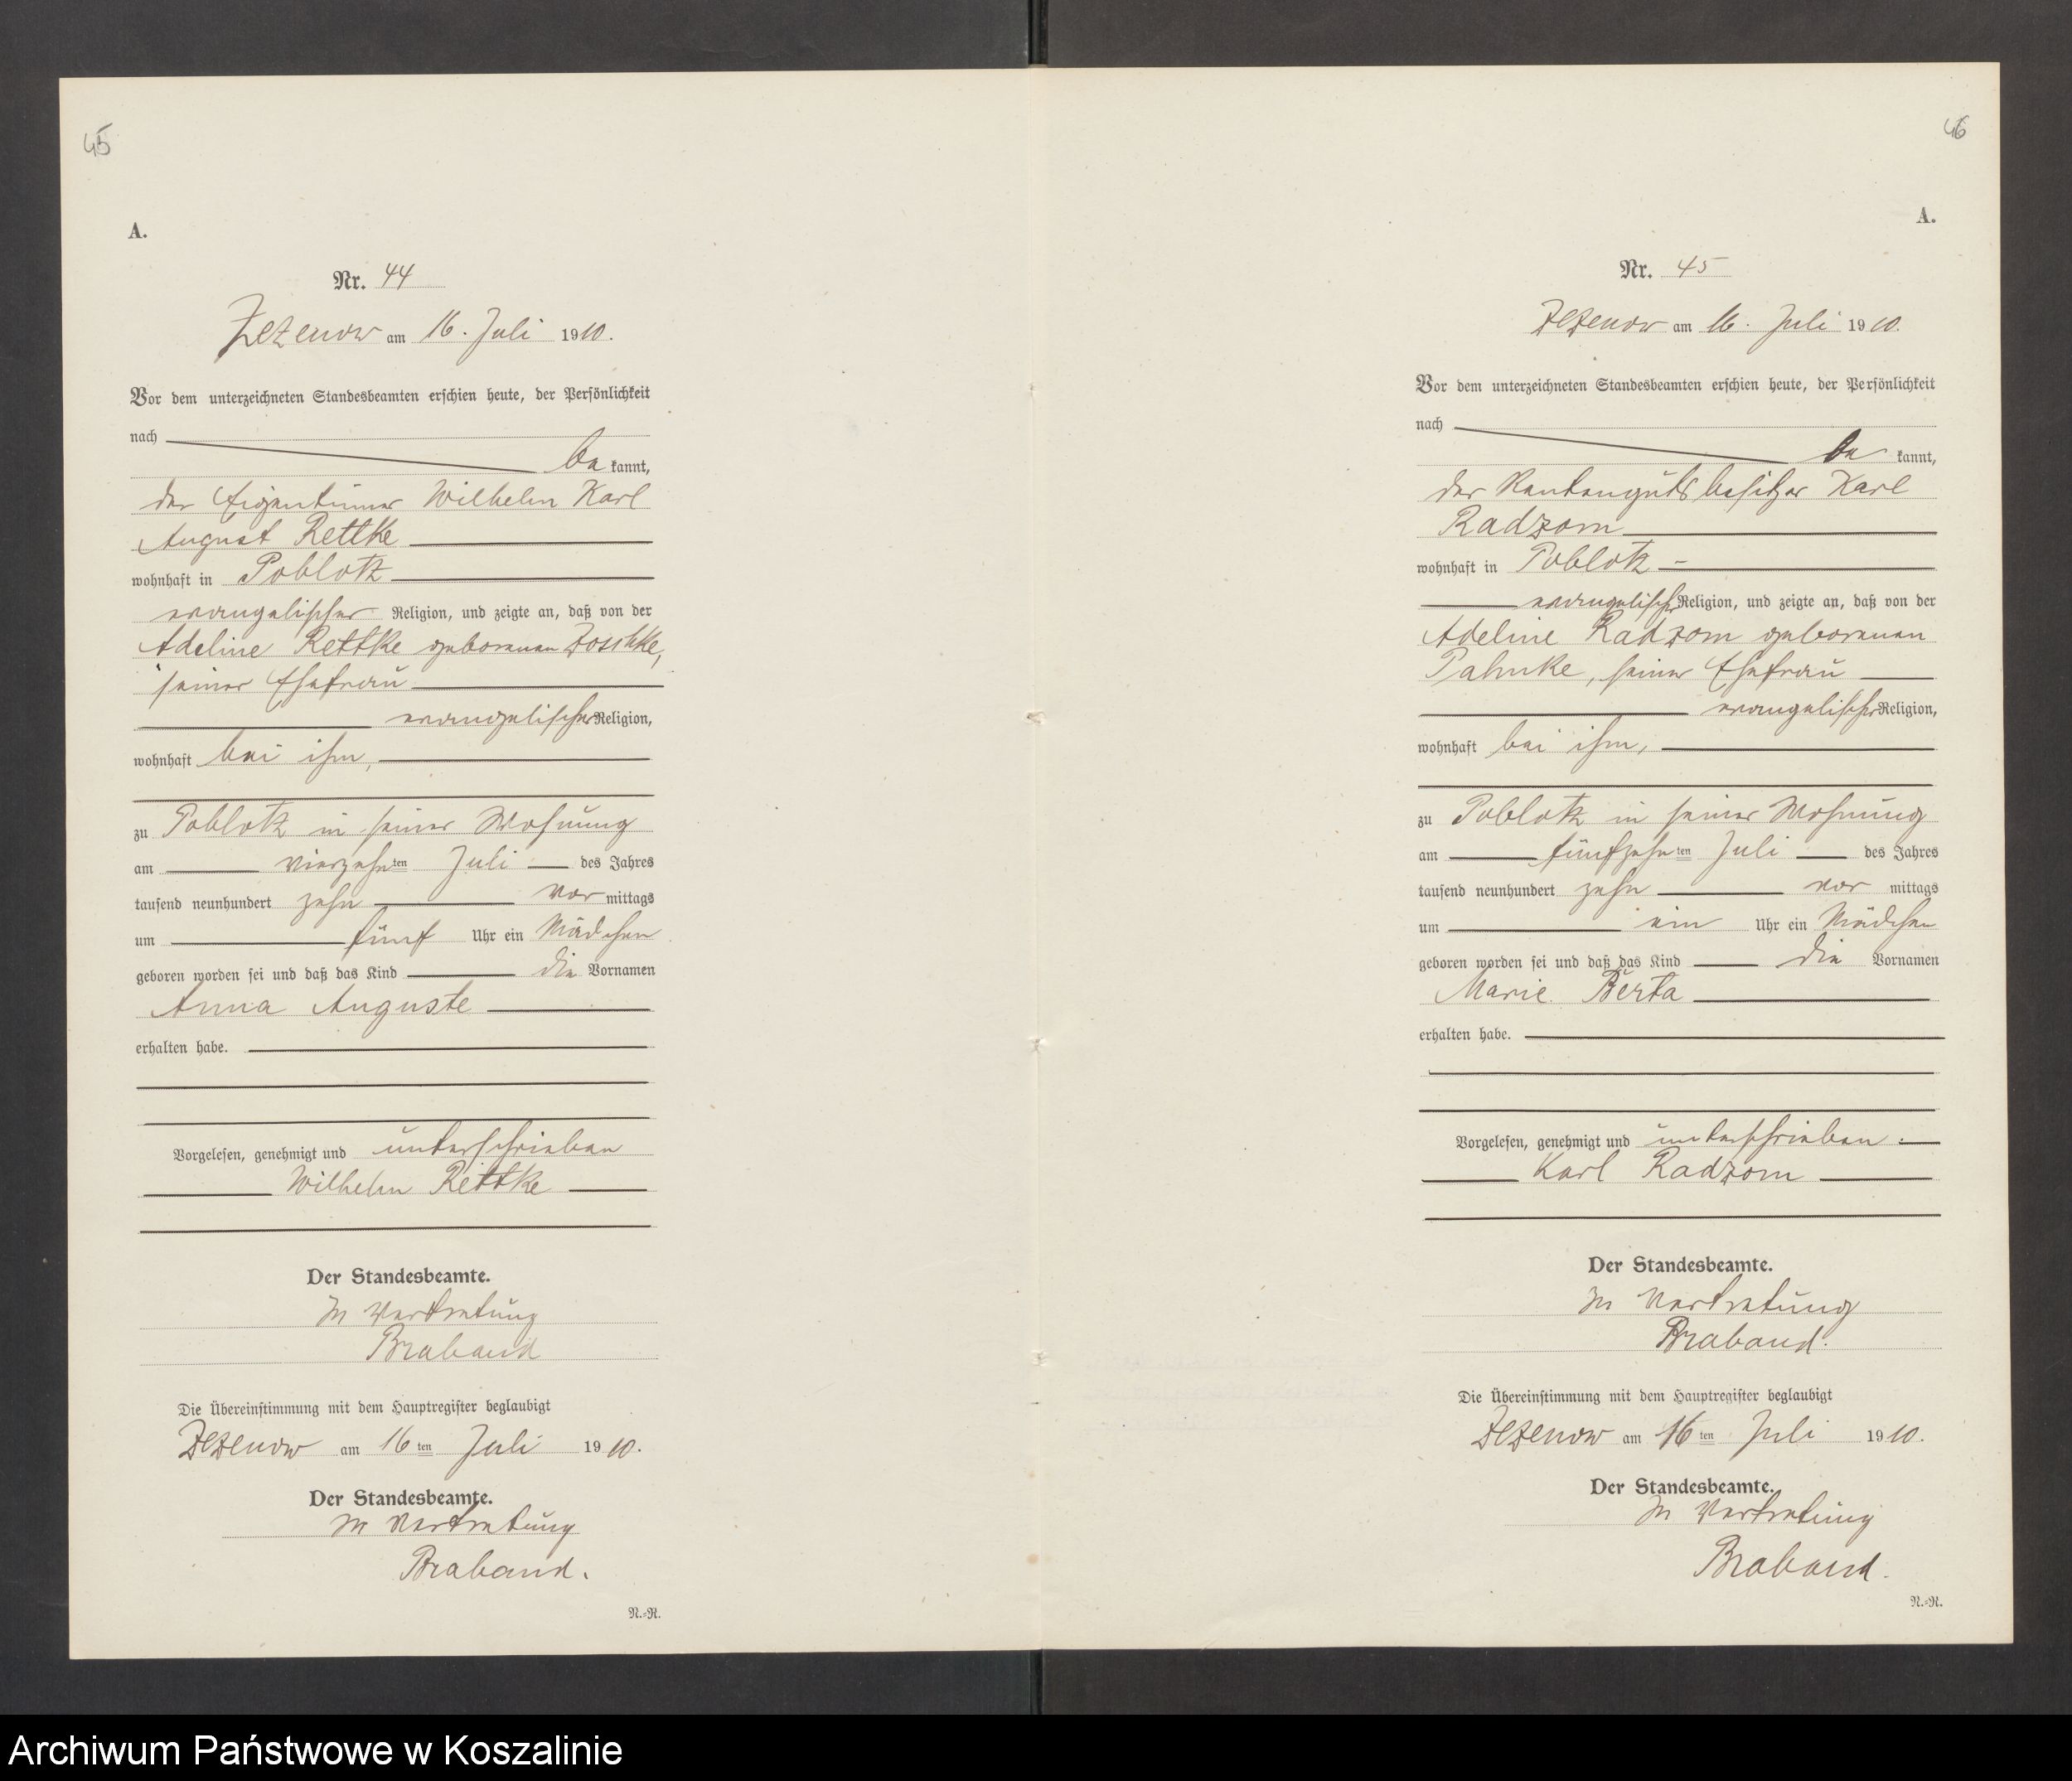 45
A.
Nr. 44
Zezenow am 16. Juli 1910.
Vor dem unterzeichneten Standesbeamten erschien heute, der Persönlichkeit
nach
be kannt,
der Eigentümer Wilhelm Karl
August Rettke
wohnhaft in Poblotz
evangelischer Religion, und zeigte an, daß von der
Adeline Rettke geborenen Joschke,
seiner Ehefrau
evangelischer Religion,
wohnhaft bei ihm,
zu Poblotz in seiner Wohnung
am vierzehnten Juli des Jahres
tausend neunhundert zehn vor mittags
um fünf Uhr ein Mädchen
geboren worden sei und daß das Kind die Vornamen
Anna Auguste
erhalten habe.
Vorgelesen, genehmigt und unterschrieben
Wilhelm Rettke
Der Standesbeamte.
In Vertretung
Braband
Die Übereinstimmung mit dem Hauptregister beglaubigt
Zezenow am 16 ten Juli 1910.
Der Standesbeamte.
In Vertretung
Braband.
N.-R.
46
A.
Nr. 45
Zezenow am 16. Juli 1910.
Vor dem unterzeichneten Standesbeamten erschien heute, der Persönlichkeit
nach
be kannt,
der Rentengutsbesitzer Karl
Radzom
wohnhaft in Poblotz
evangelisch Religion, und zeigte an, daß von der
Adeline Radzom geborenen
Pahnke, seiner Ehefrau
evangelischer Religion,
wohnhaft bei ihm,
zu Poblotz in seiner Wohnung
am fünfzehnten Juli des Jahres
tausend neunhundert zehn vor mittags
um ein Uhr ein Mädchen
geboren worden sei und daß das Kind die Vornamen
Marie Berta
erhalten habe.
Vorgelesen, genehmigt und unterschrieben.
Karl Radzom
Der Standesbeamte.
In Vertretung
Braband.
Die Übereinstimmung mit dem Hauptregister beglaubigt
Zezenow am 16 ten Juli 1910.
Der Standesbeamte.
In Vertretung
Braband.
N.-R.
Archiwum Państwowe w Koszalinie